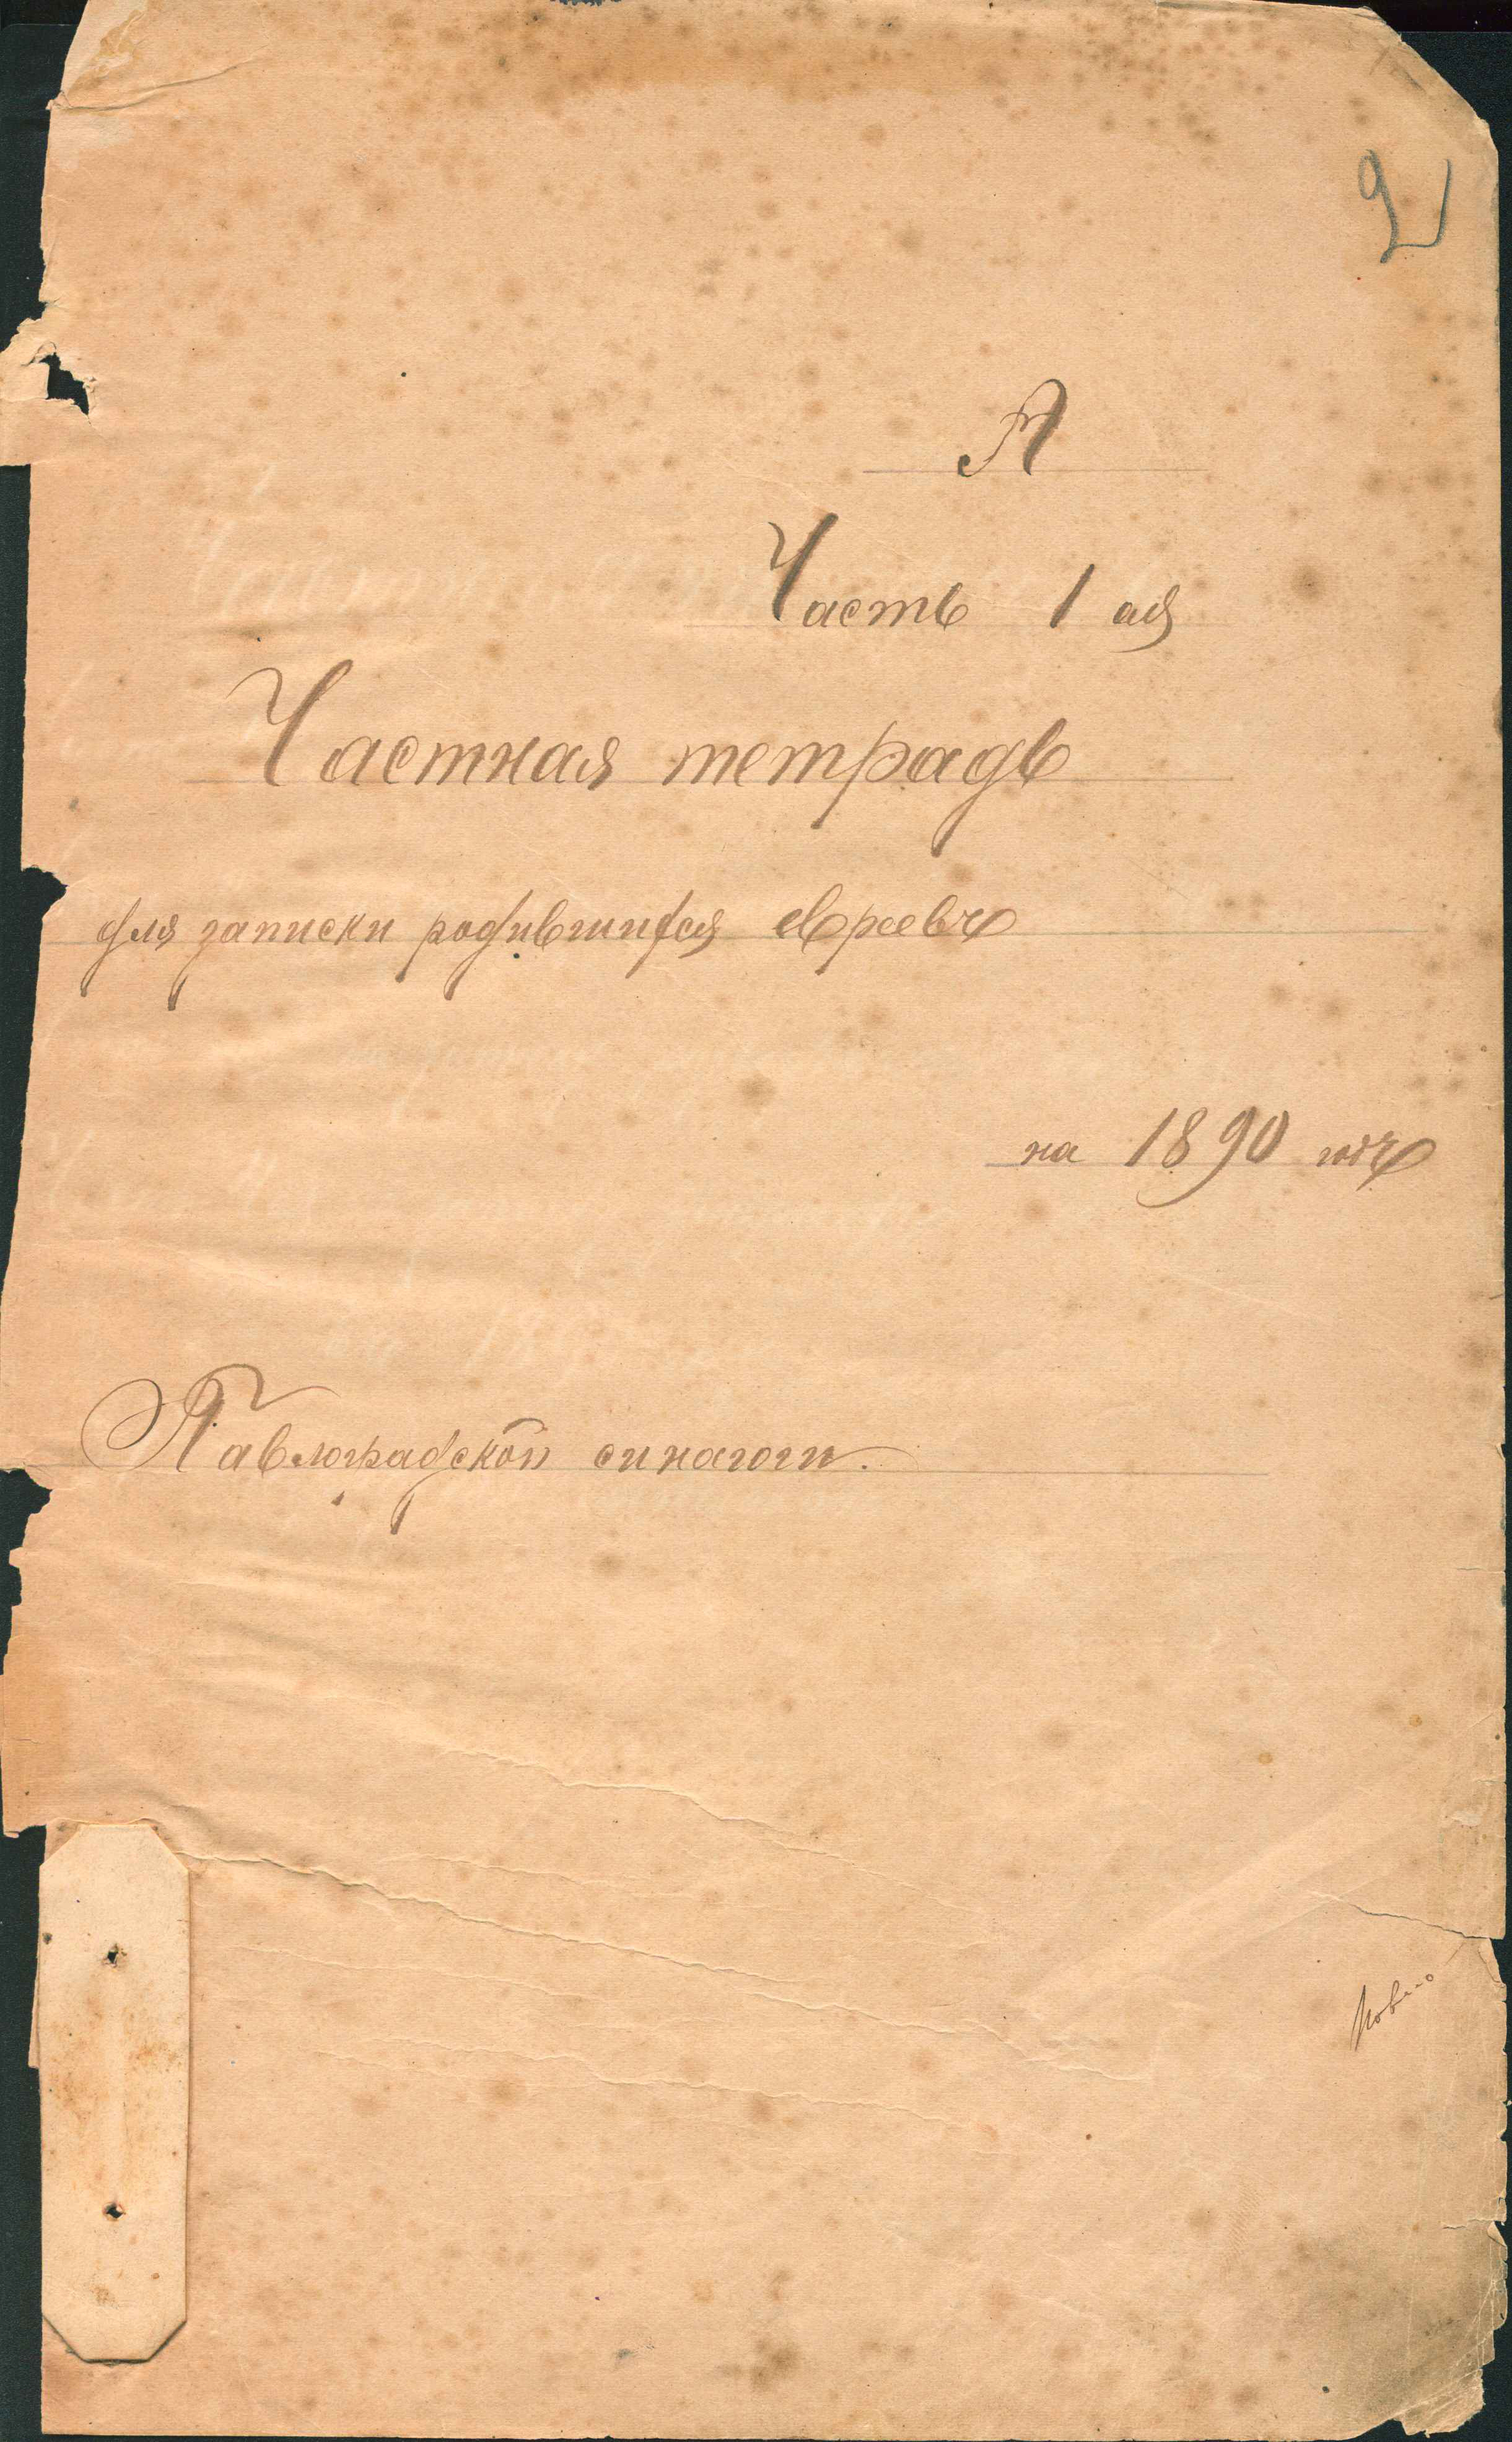 2
А
Часть 1 ая
Частная тетрадь
для записки родившихся евреевъ
на 1890 годъ
Павлоградской синагоги.